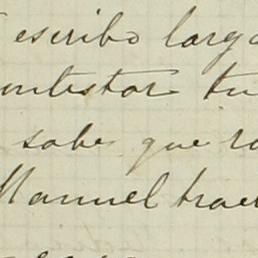 escribo larg
ntestar tu
sabe que r
Manuel trae